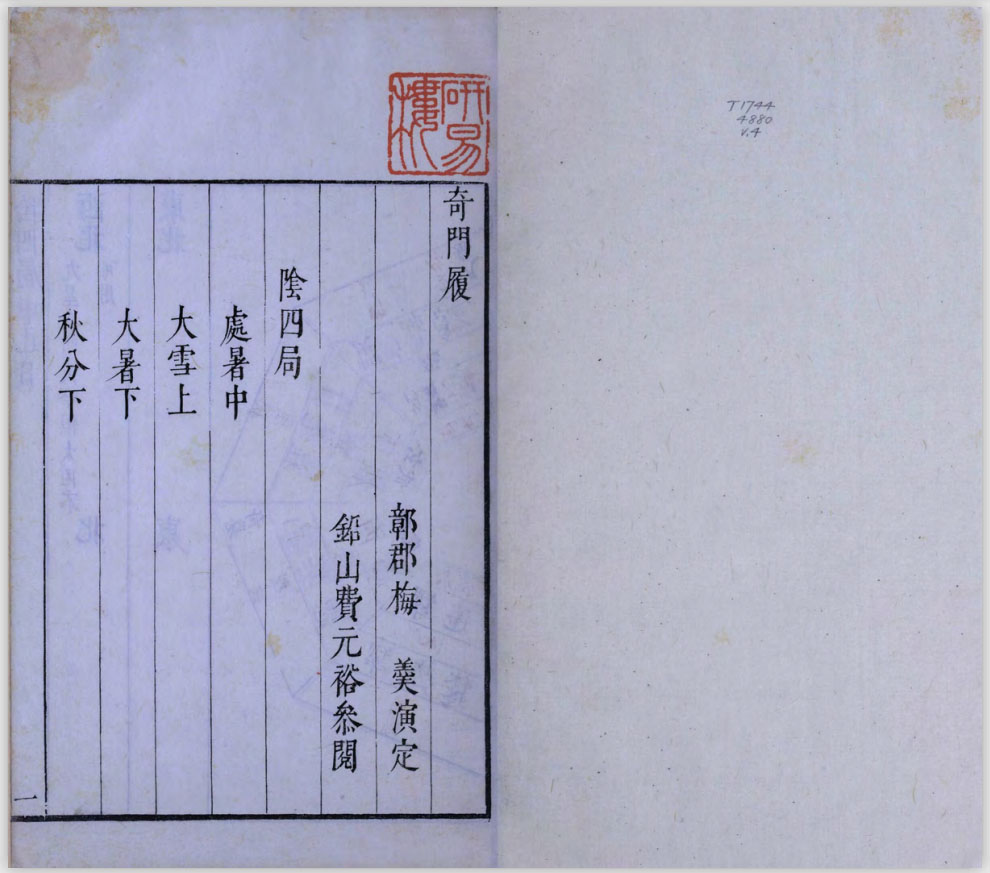 研易
樓
T1744
4880
v.4
奇門履
鄣郡梅　羹演定
鉛山費元裕叅閱
陰四局
處暑中
大雪上
大暑下
秋分下
一